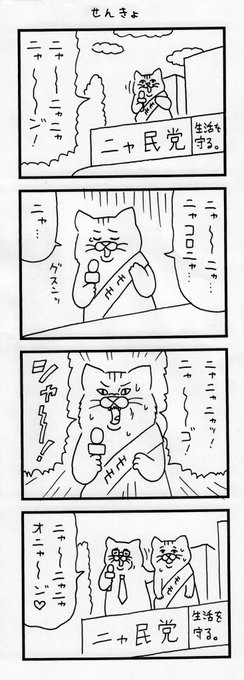 せんきょ
ニャ〜ニャニャ
ニャ〜〜〜
ン！
ニャ民党
生活を
守る。
ニャ〜ニャ…
ニャコロニャ…
ニャ…
グスンッ
ニャニャニャッ！
ニャ〜〜ゴ！
シャーッ！
ニャ〜ニャニャ
オニャ〜〜ン♡
ニャ民党
生活を
守る。